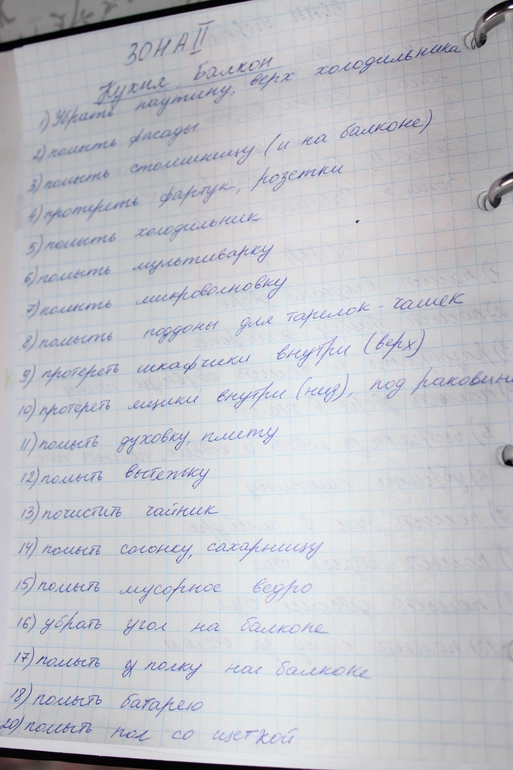 ЗОНА II
Кухня, Балкон
1) Убрать паутину, верх холодильника
2) помыть фасады
3) помыть столешницу (и на балконе)
4) протереть фартук, розетки
5) помыть холодильник
6) помыть мультиварку
7) помыть микроволновку
8) помыть поддоны для тарелок-чашек
9) протереть шкафчики внутри (верх)
10) протереть ящики внутри (низ), под раковин
11) помыть духовку, плиту
12) помыть вытежку
13) почистить чайник
14) помыть солонку, сахарницу
15) помыть мусорное ведро
16) убрать угол на балконе
17) помыть полку на балконе
18) помыть батарею
20) помыть пол со щеткой